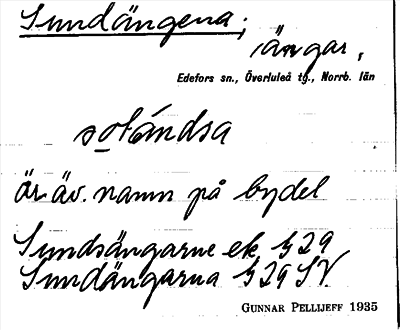 Sundängena,
ängar,
Edefors sn., Överluleå tg., Norrb. län
är äv. namn på bydel
Sundsängarne ek
Sundängarna
GUNNAR PELLIJEFF 1935